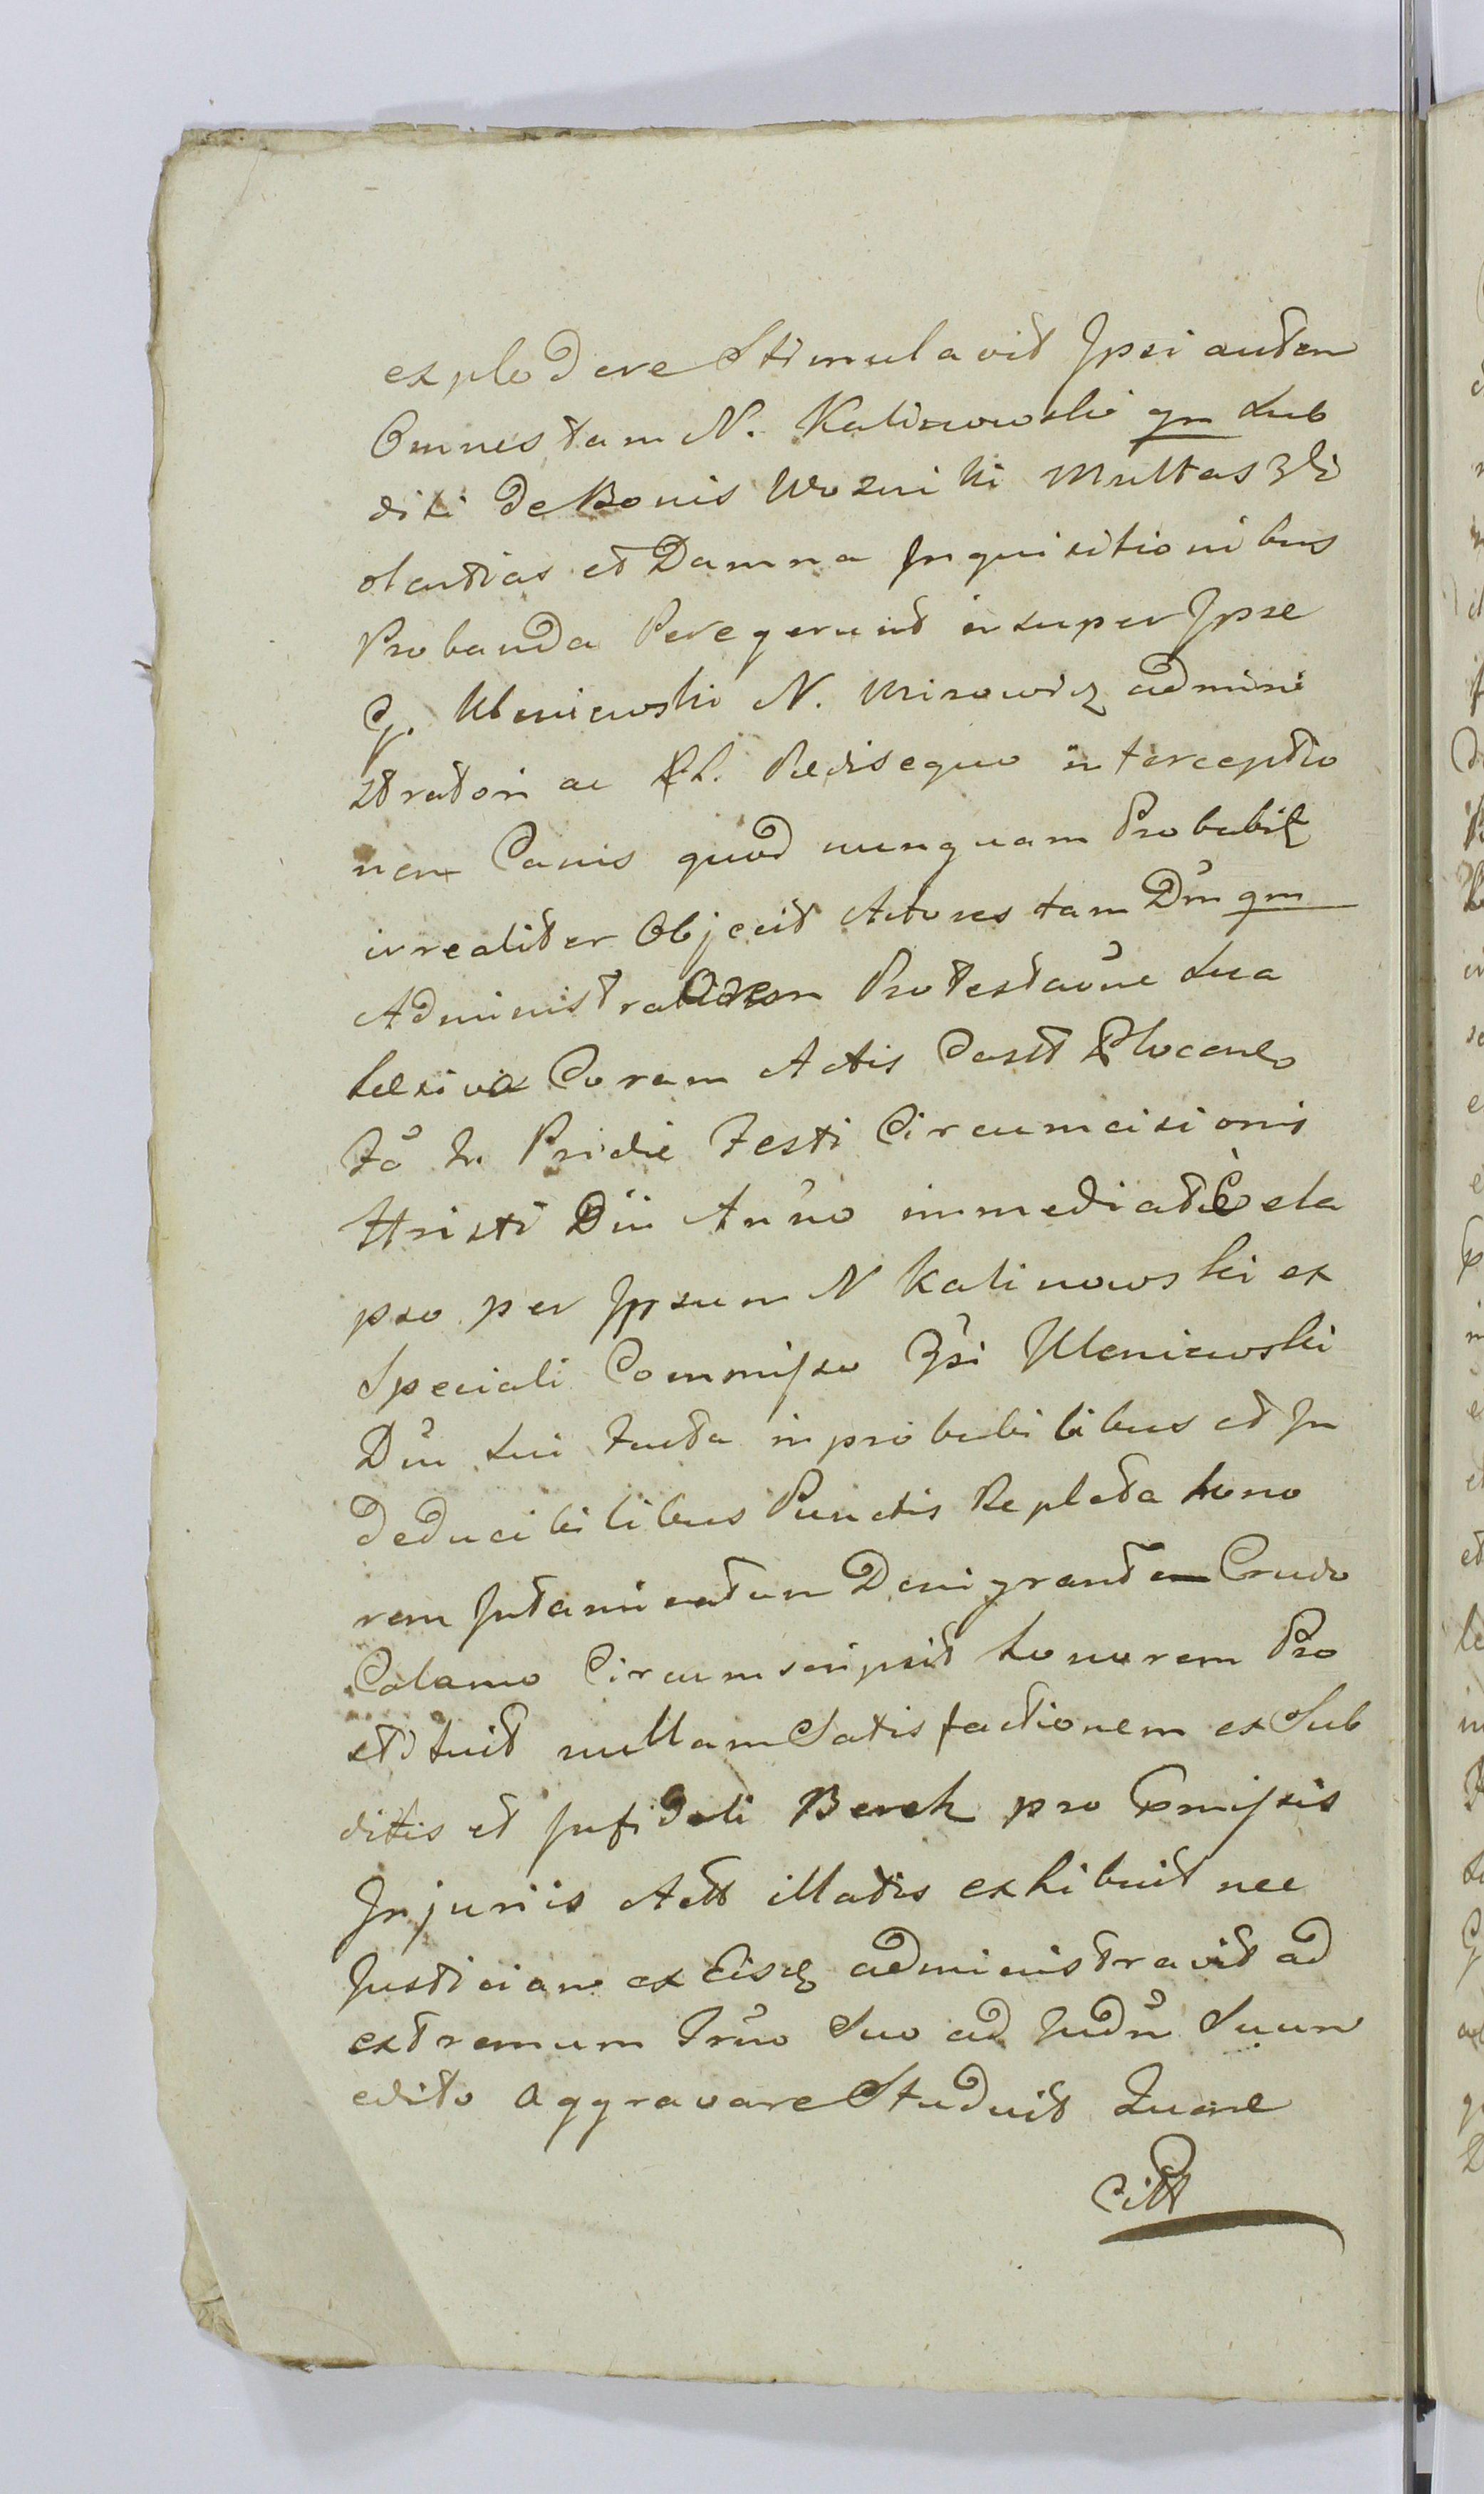 explodere Stimulavit Ipsi autem
Omnes tam N. Kalinowski qm Sub
diti de Bonis Wozniki Multas
olentias et Damna Inquisitionibus
Probanda Peregerunt insuper Ipse
G. Uleniewski N. Misowicz admini
stratori ac Pedisequo interceptio
nem Canis quod nunquam Probabit
irrealiter Objecit Actores tam Dm qm
Administratorem Protestaōne Sua
lesiva Coram Actis Castt Plocen
Fā Pridie Festi Circumcisionis
Xtristi Dni Anno immediatè ela
pso per Ipsum N Kalinowski ex
Speciali Commisso Uleniewski
Dni Sui facta inprobabilibus et In
deducibilibus Punctis Repleta hono
rem Intaminatum Denigrantem Crudo
Calamo Circumscripsit honorem Pro
stituit nullam Satisfactionem ex Sub
ditis et Infideli Berek pro Pmissis
Injuriis Actt illatis exhibuit nec
Justiciam ex Eisd administravit ad
extremum Suo ad Judm Suum
edito aggravare Studuit
Citt